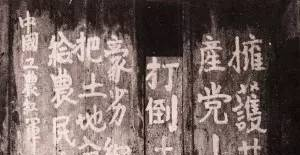 擁護共
產党
打倒
豪劣紳
把土地分
給農民
中國工農紅軍